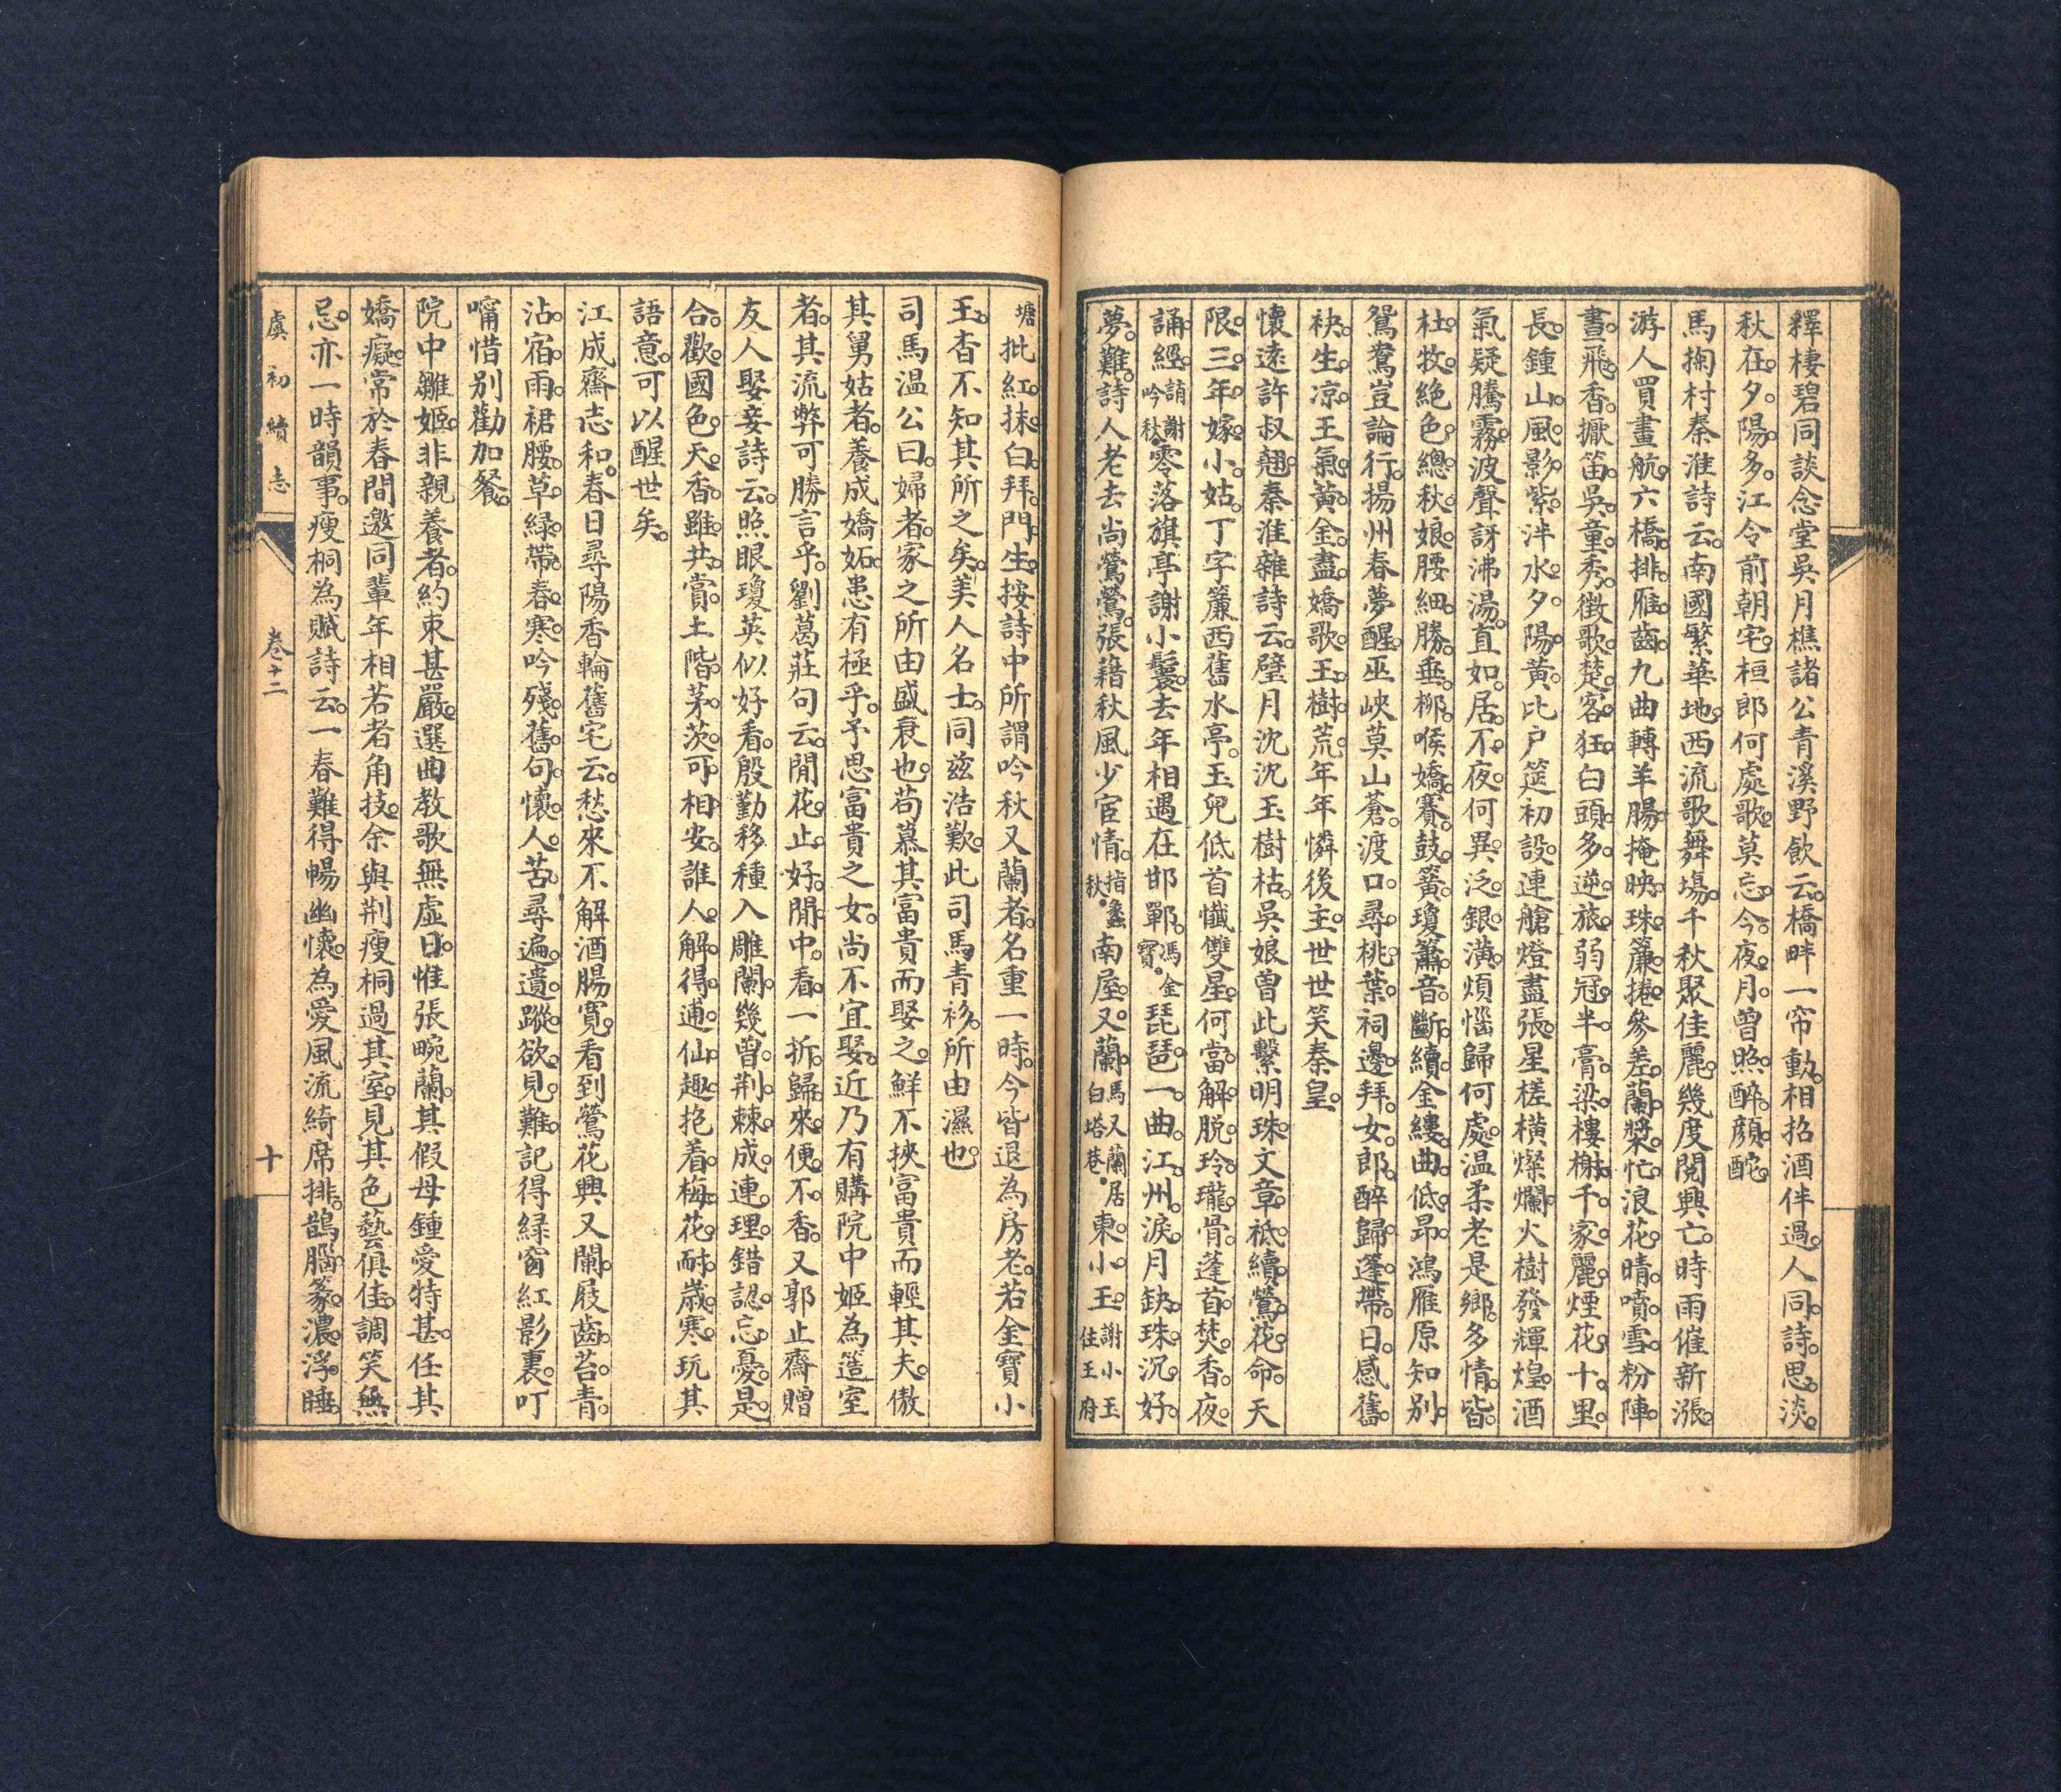 釋棲碧同談念堂吳月樵諸公青溪野飲云。橋畔一帘動。相招酒伴過。人同詩思淡。
秋在夕陽多。江令前朝宅。桓郎何處歌。莫忘今夜月。曾照醉顏酡。
馬掬村秦淮詩云。南國繁華地。西流歌舞場。千秋聚佳麗。幾度閱興亡。時雨催新漲。
游人買畫航。六橋排雁齒。九曲轉羊腸。掩映珠簾捲。參差蘭槳忙。浪花晴噴雪。粉陣
晝飛香。擫笛吳童秀。徵歌楚客狂。白頭多逆旅。弱冠半膏粱。樓榭千家麗。煙花十里
長。鍾山風影紫。泮水夕陽黃。比戶筵初設。連艙燈盡張。星槎橫燦爛。火樹發輝煌。酒
氣疑騰霧。波聲訝沸湯。直如居不夜。何異泛銀潢。煩惱歸何處。温柔老是鄉。多情皆
杜牧。絕色總秋娘。腰細勝垂柳。喉嬌賽鼓簧。瓊簫音斷續。金縷曲低昂。鴻雁原知别。
鴛鴦豈論行。揚州春夢醒。巫峽莫山蒼。渡口尋桃葉。祠邊拜女郎。醉歸蓬帶日。感舊
袂生凉。王氣黃金盡。嬌歌玉樹荒。年年憐後主。世世笑秦皇。
懷遠許叔翹秦淮雜詩云。璧月沈沈玉樹枯。吳娘曾此繫明珠。文章祗續鶯花命。天
限三年嫁小姑。丁字簾西舊水亭。玉兒低首懺雙星。何當解脱玲瓏骨。蓬首焚香夜
誦經。誚謝吟秋。零落旗亭謝小鬟。去年相遇在邯鄲。馮金寶。琵琶一曲江州淚。月缺珠沉好
夢難。詩人老去尚鶯鶯。張籍秋風少宦情。指蠡秋。南屋又蘭。馬又蘭居白塔巷。東小玉。謝小玉住王府
塘批紅抹白拜門生。按詩中所謂吟秋又蘭者。名重一時。今皆退為房老。若金寶小
玉。杳不知其所之矣。美人名士。同兹浩歎。此司馬青衫。所由濕也。
司馬温公曰。婦者。家之所由盛衰也。苟慕其富貴而娶之。鮮不挾富貴而輕其夫。傲
其舅姑者。養成嬌妬。患有極乎。予思富貴之女。尚不宜娶。近乃有購院中姬為簉室
者。其流弊可勝言乎。劉葛莊句云。閒花止好閒中看。一折歸來便不香。又郭止齋贈
友人娶妾詩云。照眼瓊英似好看。殷勤移種入雕闌。幾曾荆棘成連理。錯認忘憂是
合歡。國色天香雖共賞。土階茅茨可相安。誰人解得逋仙趣。抱着梅花耐歲寒。玩其
語意。可以醒世矣。
江成齋志和。春日尋陽香輪舊宅云。愁來不解酒腸寬。看到鶯花興又闌。屐齒苔青。
沾宿雨。裙腰草緑帶春寒。吟殘舊句懷人苦。尋遍遺蹤欲見難。記得緑窗紅影裏。叮
嚀惜别勸加餐。
院中雛姬。非親養者。約束甚嚴。選曲教歌無虚日。惟張畹蘭。其假母鍾愛特甚。任其
嬌癡。常於春間邀同輩年相若者角技。余與荆瘦桐過其室。見其色藝俱佳。調笑無
忌。亦一時韻事。瘦桐為賦詩云。一春難得暢幽懷。為愛風流綺席排。鵲腦篆濃浮睡
虞初續志
卷十二
十